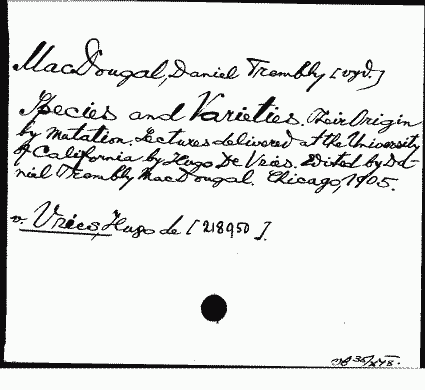 MacDougal, Daniel Trembly [vyd.]
Species and Varieties. Their Origin
by Mutation. Lectures delivered at the University
of California by Hugo De Vries. Edited by Da-
niel Trembly MacDougal. Chicago, 1905.
v. Vries, Hugo de [218950].